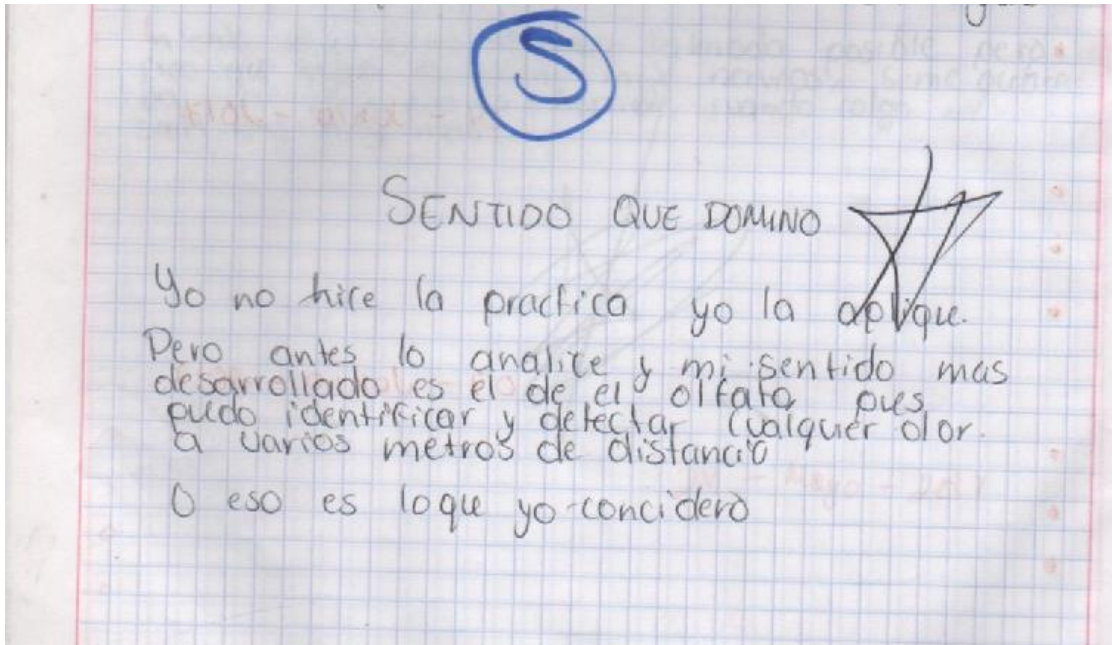 S
SENTIDO QUE DOMINO
Yo no hice la practica yo la aplique.
Pero antes lo analice y mi sentido mas
desarrollado es el de el olfato pues
puedo identificar y detectar cualquer olor.
a varios metros de distancia
O eso es loque yo concidero